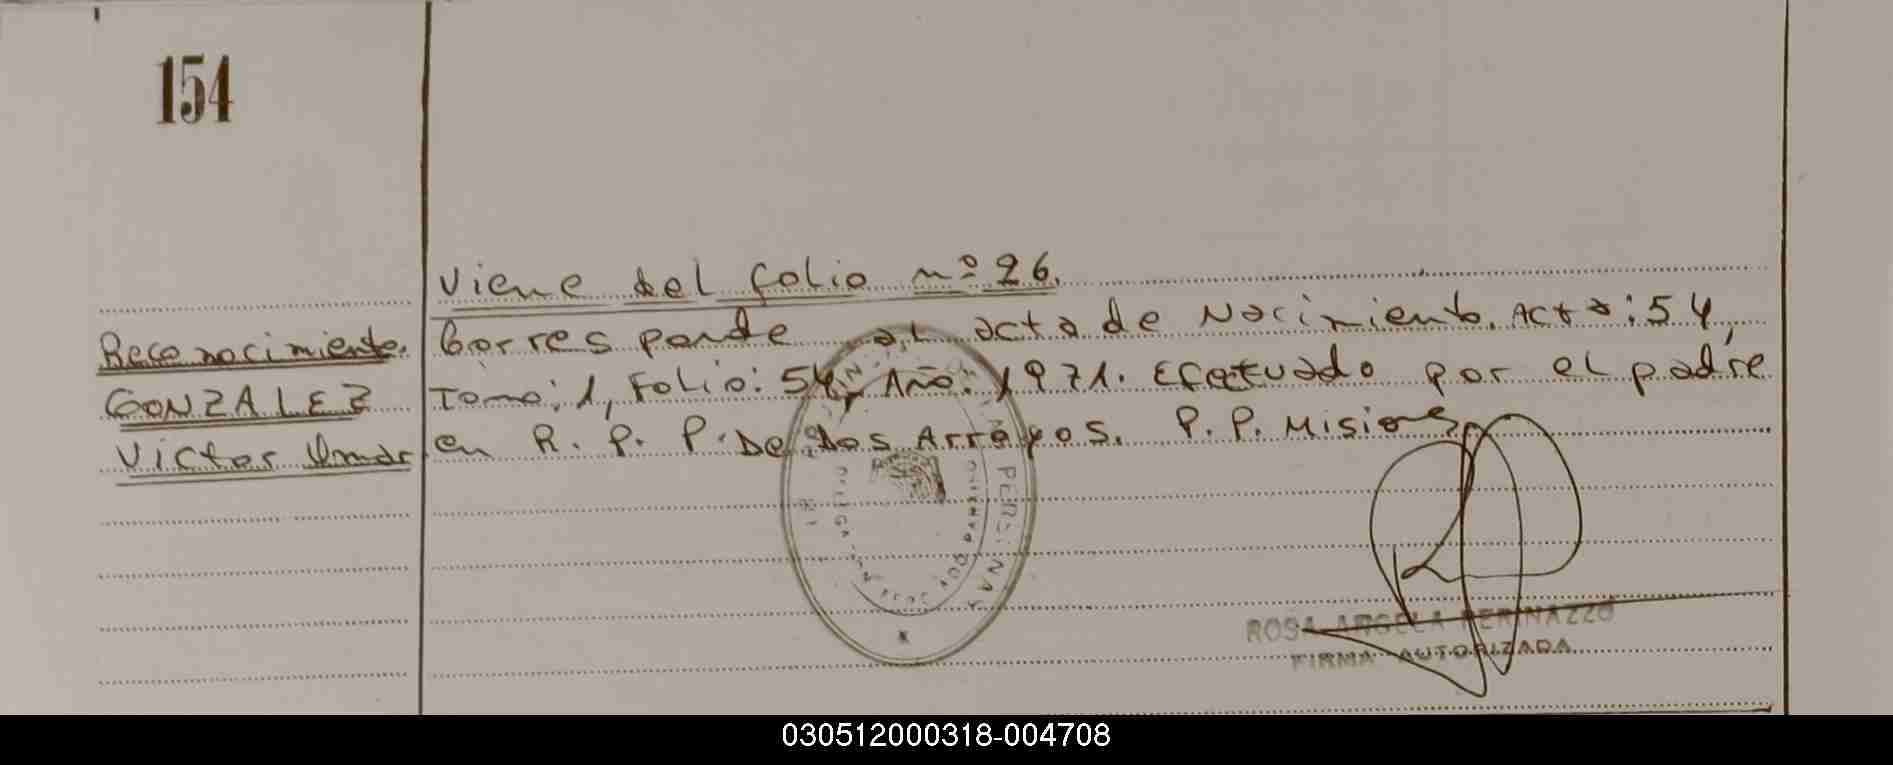 154
Viene del folio nº 26.
Reconocimiento. Corresponde al acta de Nacimiento. Acta: 54,
GONZALEZ Tomo: 1, Folio: 54, Año: 1971. Efectuado por el padre
Victor Omar en R. P. P. De Dos Arroyos. P. P. Misiones
ROSA ANGELA PERINAZZO
FIRMA AUTORIZADA
030512000318-004708